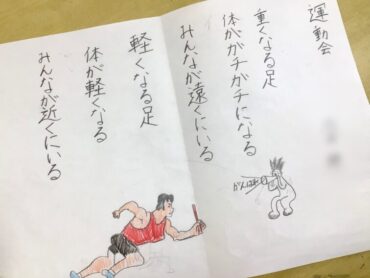 運動会
重くなる足
体がガチガチになる
みんなが遠くにいる
がんばれ
軽くなる足
体が軽くなる
みんなが近くにいる